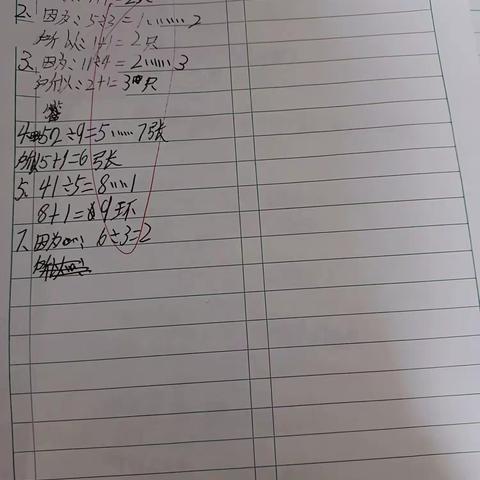 2、因为:5÷3=1……2
所以:1+1=2只
3、因为:11÷4=2……3
所以:2+1=3只
4、52÷9=5……7张
5+1=6张
5、41÷5=8……1
8+1=9环
7、因为:6÷3=2